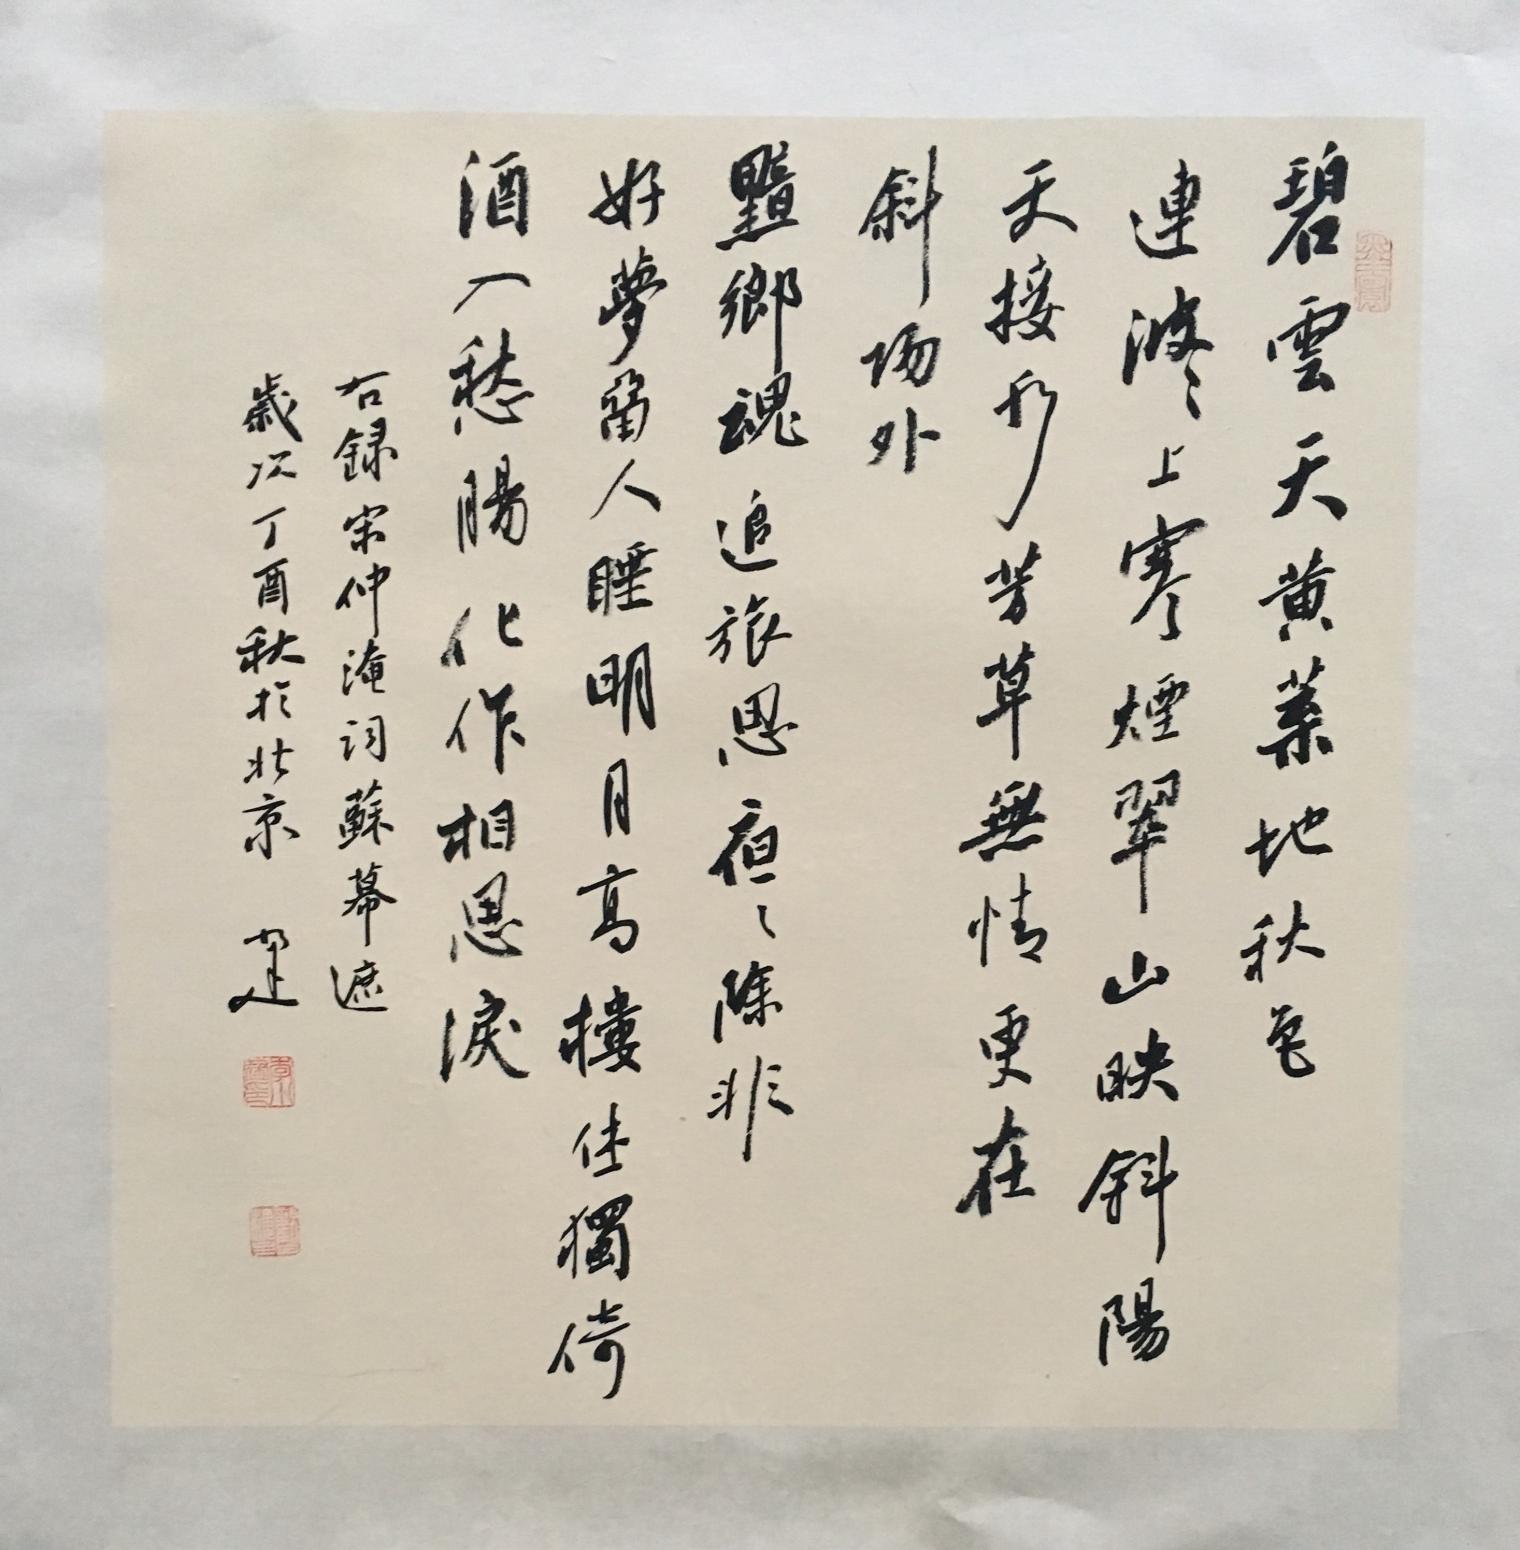 碧雲天黄葉地秋色
連波々上寒煙翠山映斜陽
天接水芳草無情更在
斜陽外
黯鄉魂追旅思夜々除非
好夢留人睡明月高樓休獨倚
酒入愁腸化作相思淚
右録宋仲淹詞蘇幕遮
歲次丁酉秋於北京